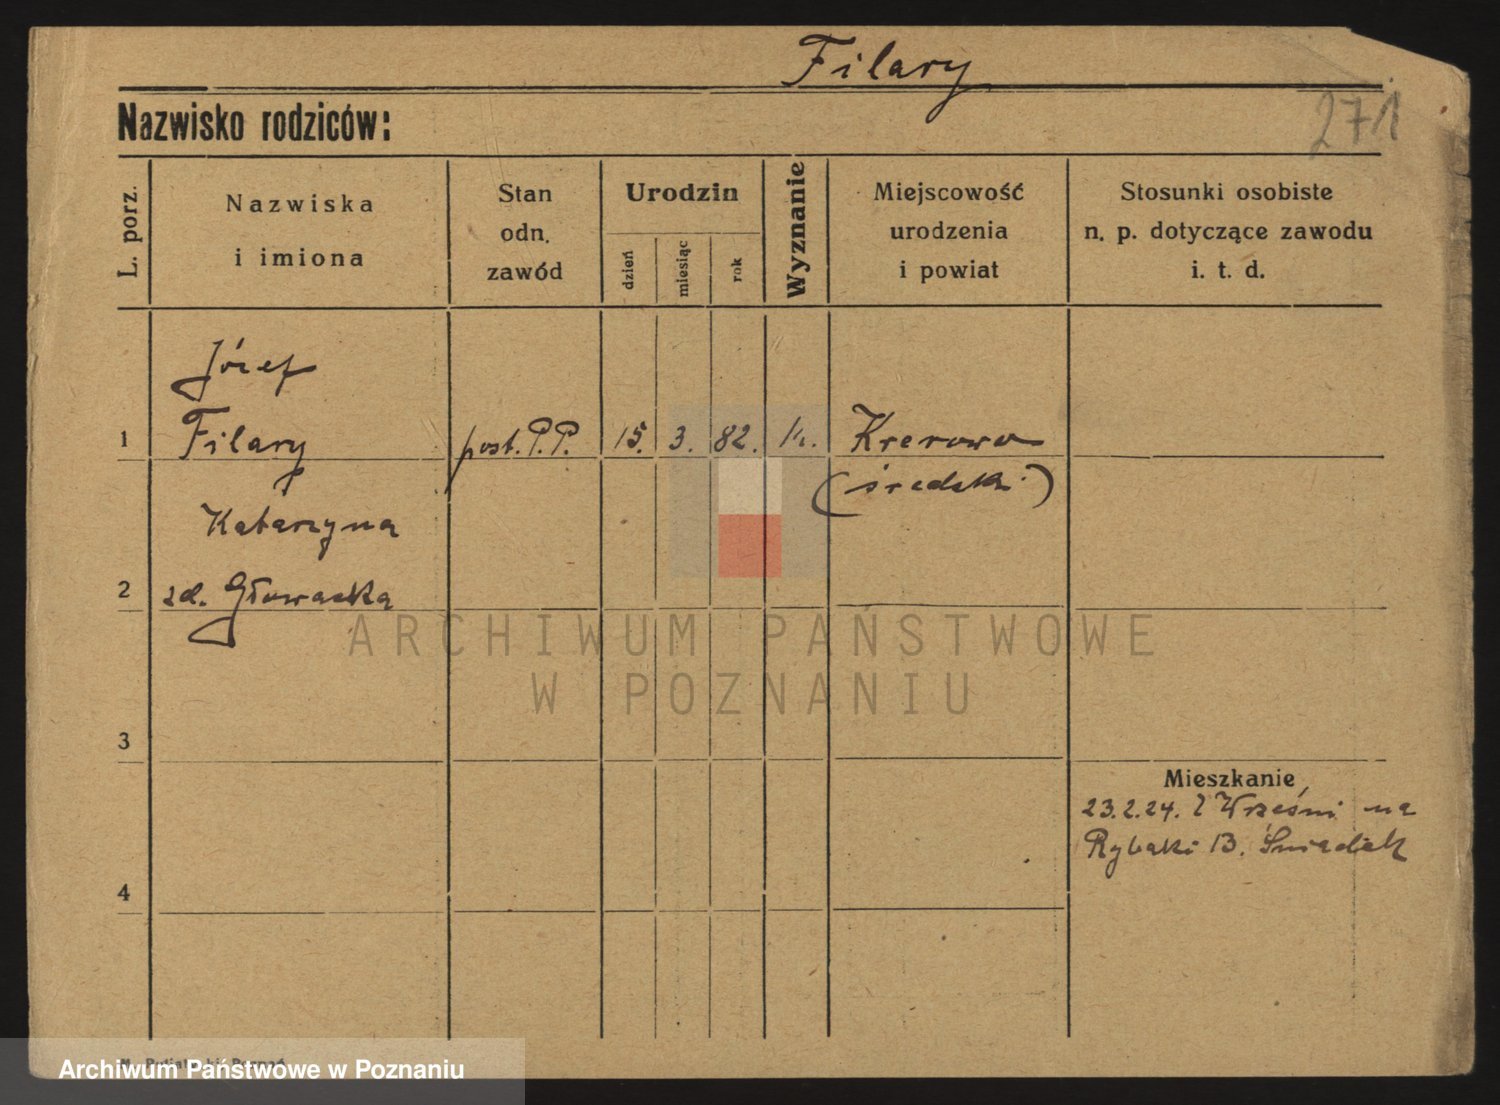 Filary
271
Nazwisko rodziców:
L. porz.
Nazwiska
i imiona
Stan
odn.
zawód
Urodzin
dzień
miesiąc
rok
Wyznanie
Miejscowość
urodzenia
i powiat
Stosunki osobiste
n. p. dotyczące zawodu
i. t. d.
Józef
1 Filary post. P.P. 15. 3. 82. Krerowo
(średzki)
Katarzyna
2 zd. Głowacka
ARCHIWUM PAŃSTWOWE
W POZNANIU
3
Mieszkanie
23.2.24. Z Wrześni na
Rybaki 13.
4
Archiwum Państwowe w Poznaniu